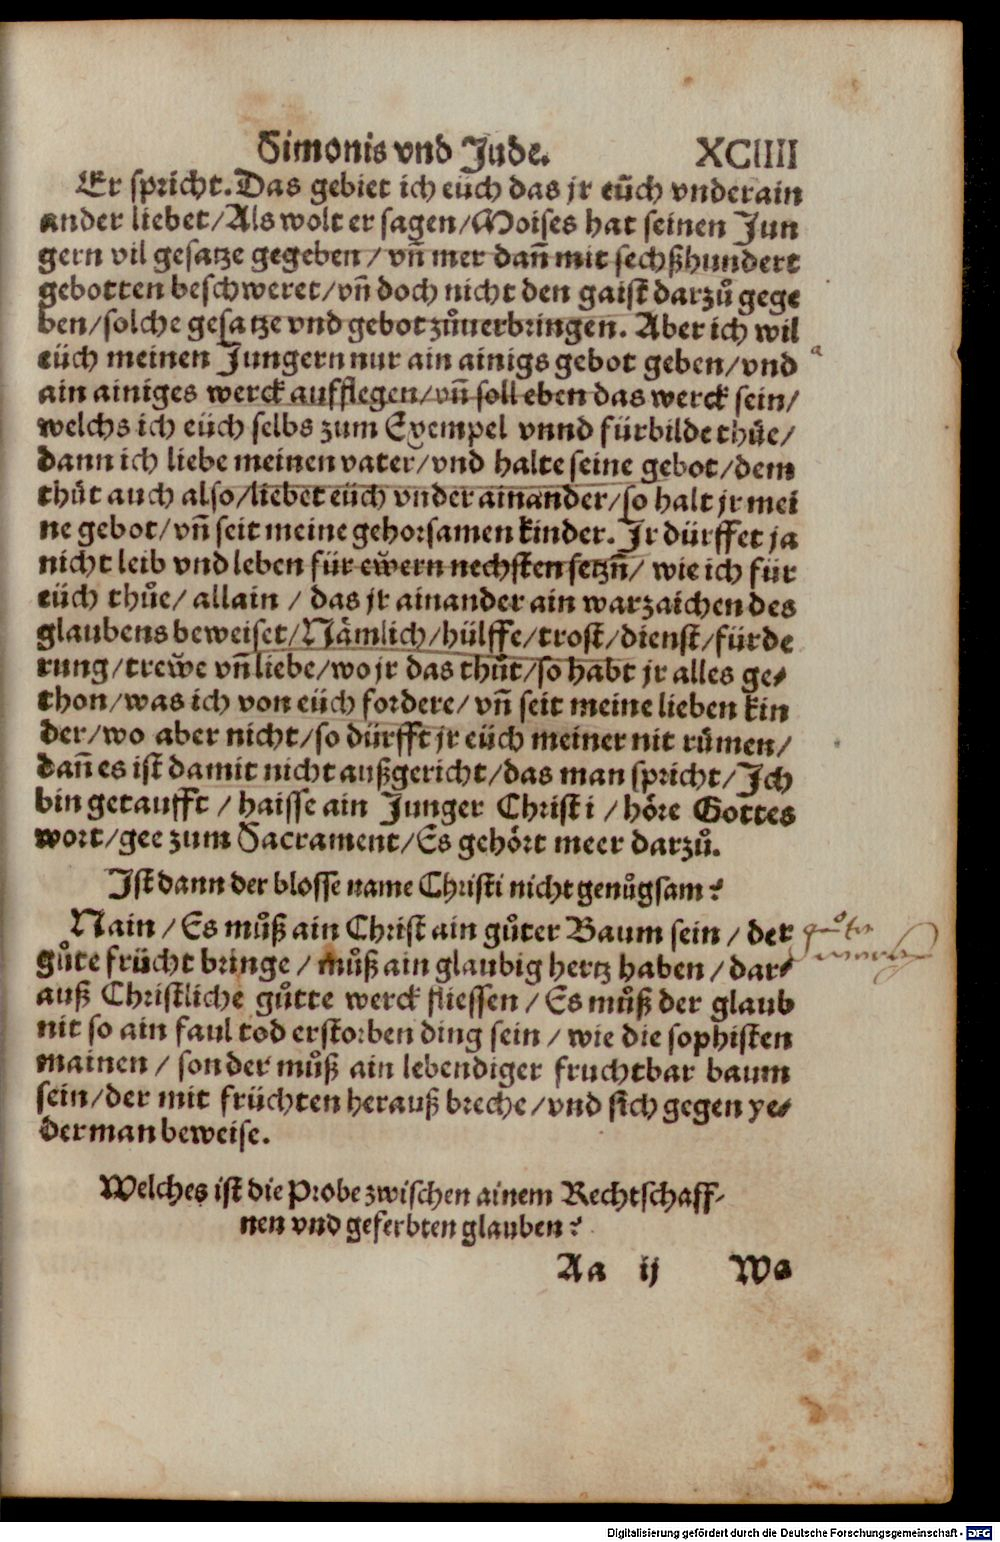 Simonis vnd Jude. XCIIII
Er spricht. Das gebiet ich eüch das jr eüch vnderain
ander liebet/Als wolt er sagen/Moises hat seinen Jun
gern vil gesatze gegeben/vñ mer dañ mit sechßhundert
gebotten beschweret/vñ doch nicht den gaist darzů gege
ben/solche gesatze vnd gebot zůuerbringen. Aber ich wil
eüch meinen Jungern nur ain ainigs gebot geben/vnd
ain ainiges werck aufflegen/vñ soll eben das werck sein/
welchs ich eüch selbs zum Exempel vnnd fürbilde thůe/
dann ich liebe meinen vater/vnd halte seine gebot/dem
thůt auch also/liebet eüch vnder ainander/so halt jr mei
ne gebot/vñ seit meine gehorsamen kinder. Jr dürffet ja
nicht leib vnd leben für ewern nechsten setzñ/wie ich für
eüch thůe/allain/das jr ainander ain warzaichen des
glaubens beweiset/Nämlich/hülffe/trost/dienst/fürde
rung/trewe vñ liebe/wo jr das thůt/so habt jr alles ge-
thon/was ich von eüch fordere/vñ seit meine lieben kin
der/wo aber nicht/so dürfft jr eüch meiner nit růmen/
dañ es ist damit nicht außgericht/das man spricht/Ich
bin getaufft/haisse ain Junger Christi/höre Gottes
wort/gee zum Sacrament/Es gehört meer darzů.
Ist dann der blosse name Christi nicht genůgsam?
Nain/Es můß ain Christ ain gůter Baum sein/der
gůte frücht bringe/můß ain glaubig hertz haben/dar-
auß Christliche gůtte werck fliessen/Es můß der glaub
nit so ain faul tod erstorben ding sein/wie die sophisten
mainen/sonder můß ain lebendiger fruchtbar baum
sein/der mit früchten herauß breche/vnd sich gegen ye-
derman beweise.
gůte
werck
Welches ist die Probe zwischen ainem Rechtschaff-
nen vnd geferbten glauben?
Aa ij Wa
Digitalisierung gefördert durch die Deutsche Forschungsgemeinschaft - DFG